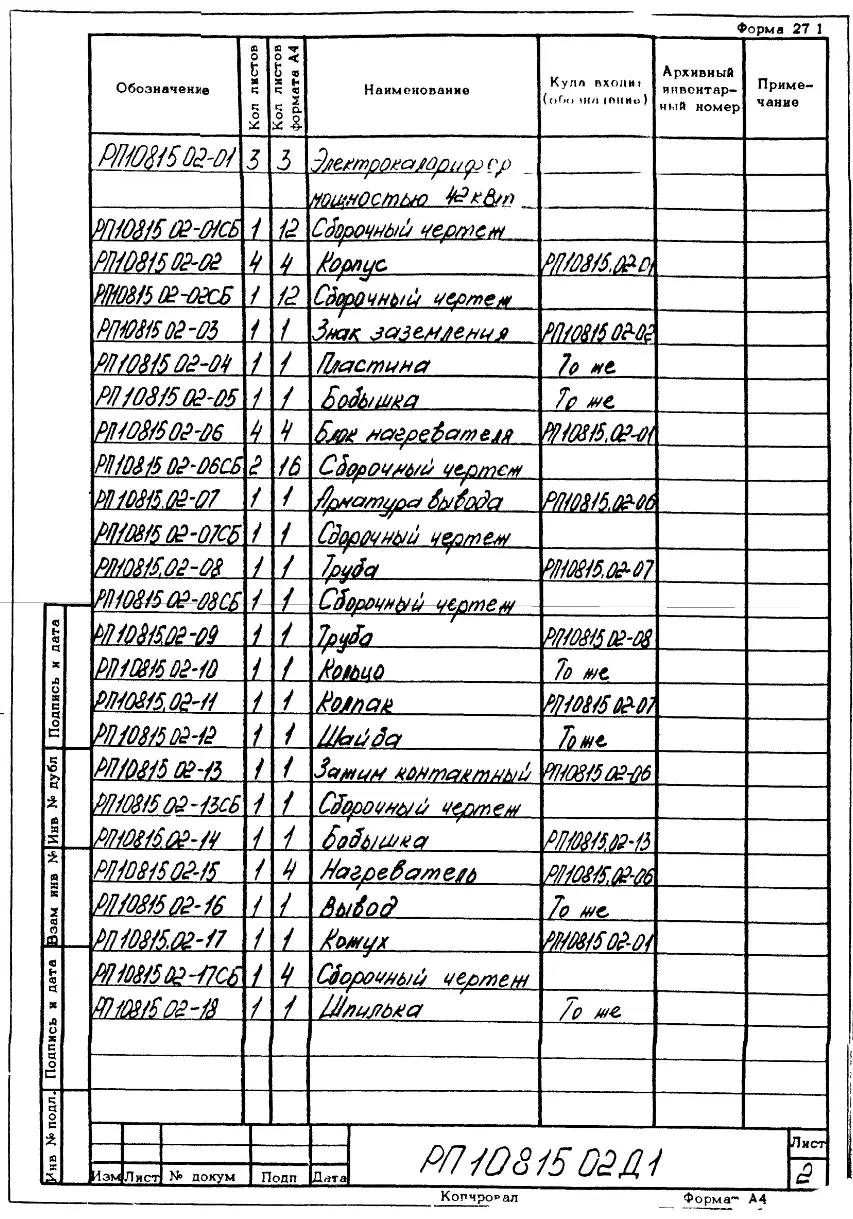 Форма 27 1
Обозначение Кол листов Кол листов формата А4 Наименование Куда входит (обозначение) Архивный инвентар-ный номер Приме-чание
РП10815 02-01 3 3 Электрокалорифер
мощностью 42 кВт
РП10815 02-01СБ 1 12 Сборочный чертеж
РП10815 02-02 4 4 Корпус РП10815.02-01
РП10815 02-02СБ 1 12 Сборочный чертеж
РП10815 02-03 1 1 Знак заземления РП10815 02-02
РП10815 02-04 1 1 Пластина То же
РП10815 02-05 1 1 Бобышка То же
РП10815 02-06 4 4 Блок нагревателя РП10815.02-01
РП10815 02-06СБ 2 16 Сборочный чертеж
РП10815.02-07 1 1 Арматура вывода РП10815.02-06
РП10815 02-07СБ 1 1 Сборочный чертеж
РП10815.02-08 1 1 Труба РП10815.02-07
РП10815 02-08СБ 1 1 Сборочный чертеж
РП10815.02-09 1 1 Труба РП10815 02-08
РП10815 02-10 1 1 Кольцо То же
РП10815.02-11 1 1 Колпак РП10815 02-07
РП10815 02-12 1 1 Шайба То же
РП10815 02-13 1 1 Зажим контактный РП10815 02-06
РП10815 02-13СБ 1 1 Сборочный чертеж
РП10815.02-14 1 1 Бобышка РП10815.02-13
РП10815 02-15 1 4 Нагреватель РП10815.02-06
РП10815 02-16 1 1 Вывод То же
РП10815.02-17 1 1 Кожух РП10815 02-01
РП10815 02-17СБ 1 4 Сборочный чертеж
РП10815 02-18 1 1 Шпилька То же
Подпись и дата
Инв № дубл
Взам инв №
Подпись и дата
Инв № подл.
Изм Лист № докум Подп Дата
РП10815 02Д1
Лист
2
Копировал Формат А4